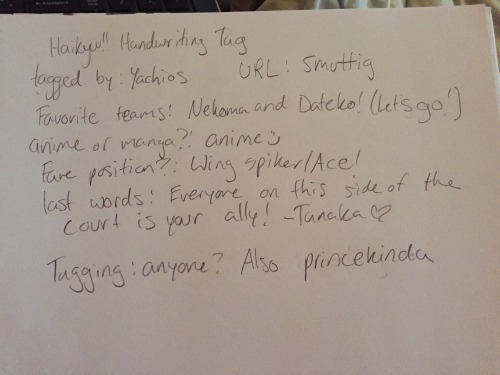 Haikyu!! Handwriting Tag
tagged by: Yachios URL: Smuttig
Favorite teams: Nekoma and Dateko! (Let's go!)
anime or manga?: anime :)
Fave position?: Wing spiker/Ace!
last words: Everyone on this side of the
court is your ally! -Tanaka ♡
Tagging: anyone? Also princekinda